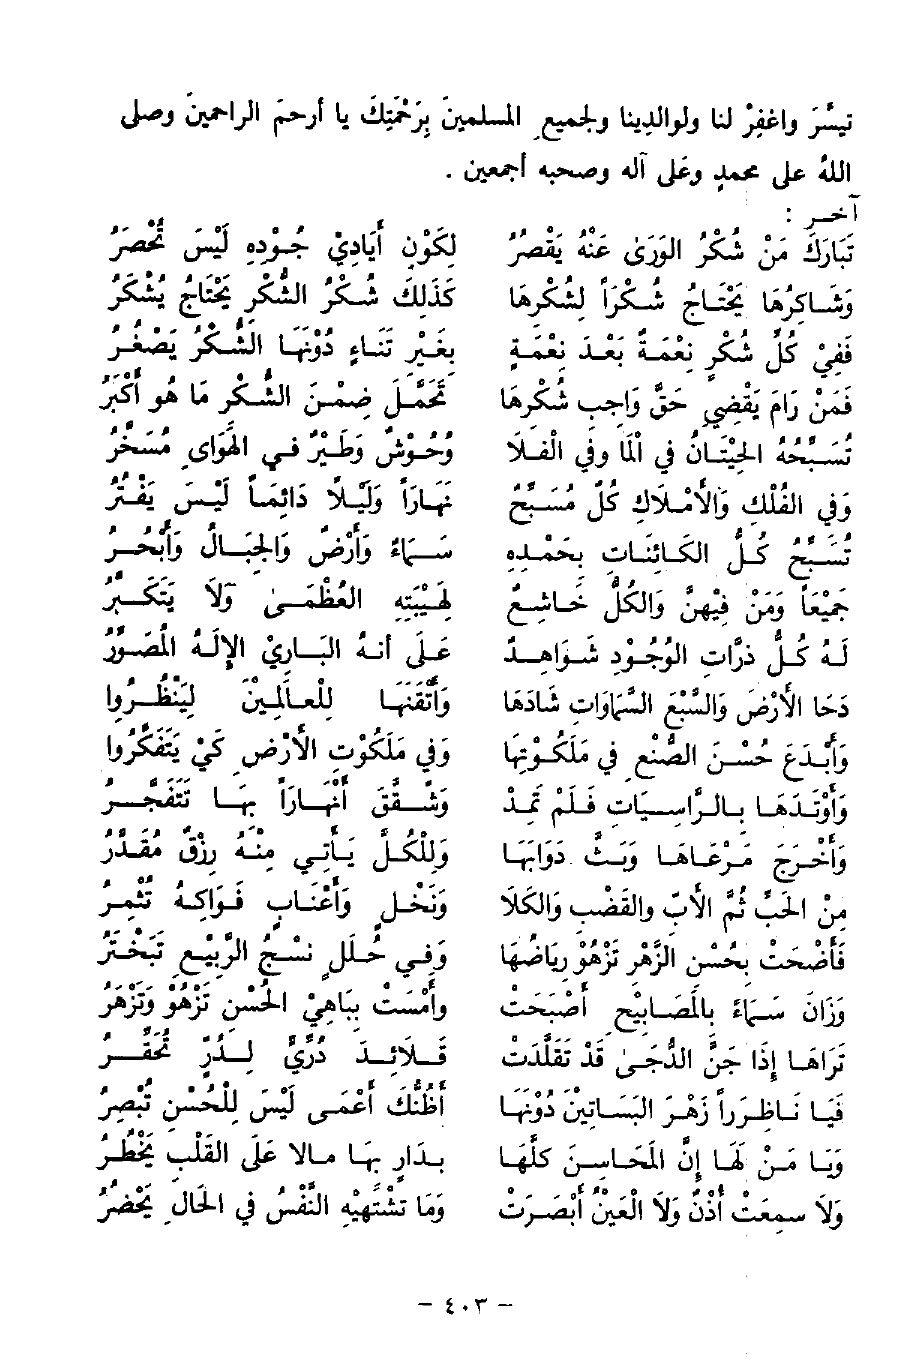 تيسَّرَ واغفِرْ لنا ولوالدِينا ولجميعِ المسلمينَ بِرَحْمَتِكَ يا أرحمَ الراحمينَ وصلى
اللهُ على محمدٍ وعَلى آله وصحبه أجمعين .
آخـر :
تَبَارَكَ مَنْ شُكْرُ الوَرَى عَنْهُ يَقصُرُ لِكَوْنِ أَيَادِيْ جُـوْدِهِ لَيْسَ تُحْصَرُ
وَشَـاكِرُهَا يَحْتَـاجُ شُـكْرَاً لِشُكْرِهَا كَذَلِكَ شُـكْرُ الشُّكْرِ يَحْتَاجُ يُشْكَرُ
فَفِيْ كُلِّ شُكْرٍ نِعْمَـةٌ بَعْـدَ نِعْمَةٍ بِغَـيْرِ ثَنَـاءٍ دُوْنَهَـا الشُّـكْرُ يَصْغُـرُ
فَمَنْ رَامَ يَقْضِي حَقَّ وَاجِبِ شُكْرِهَا تَحَمَّـلَ ضِمْـنَ الشُّـكْرِ مَا هُو أَكْبَرُ
تُسَـبِّحُهُ الحِيْتَـانُ في الْمَا وفي الْفَـلاَ وُحُـوْشٌ وَطَـيْرٌ فـي الْهَوَاى مُسَـخَّرُ
وَفي الفُلْكِ وَالأَمْـلاَكِ كُلٌّ مُسَـبِّحٌ نَهَـارَاً وَلَيْـلاً دَائِمَـاً لَيْـسَ يَفْـتُرُ
تُسَـبِّحُ كُـلُّ الكَـائِنَـاتِ بِحَمْـدِهِ سَـمَاءٌ وَأَرْضٌ وَالْجِبَـالُ وَأَبْحُـرُ
جَمِيْعَاً وَمَنْ فِيْهِنَّ وَالكُلُّ خَـاشِـعٌ لِهَيْبَتِهِ العُظْمَـى وَلاَ يَتَكَـبَّرُ
لَهُ كُـلُّ ذرَّاتِ الوُجُـوْدِ شَـوَاهِـدٌ عَـلَى أَنـهُ البَـارِيْ الإِلَـهُ الْمُصَـوِّرُ
دَحَا الأَرْضَ وَالسَّبْعَ السَّمَاوَاتِ شَادَهَا وَأَتْقَنَهَـا لِلْعَـالَمِيْنَ لِيَنْظُـرُوا
وَأَبْـدَعَ حُسْـنَ الصُّنْعِ في مَلَكُـوْتِهَا وَفي مَلَكُوْتِ الأَرْضِ كَيْ يَتَفَكَّرُوا
وَأَوْتَـدَهَـا بـالـرَّاسِـيَاتِ فَـلَمْ تَمِـدْ وَشَـقَّقَ أَنْهَـارَاً بِهَـا تَتَفَجَّـرُ
وَأَخْـرَجَ مَـرْعَـاهَـا وَبَـثَّ دَوَابَّهَـا وَلِلْكُـلِّ يَـأْتِـي مِنْـهُ رِزْقٌ مُقَـدَّرُ
مِنْ الحَبِّ ثُمَّ الأَبِّ والقَضْبِ وَالكَلاَ وَنَخْـلٍ وَأَعْنَـابٍ فَـوَاكِـهُ تُثْمِـرُ
فَأَضْحَتْ بِحُسْنِ الزَّهْرِ تَزْهُوْ رِيَاضُهَا وَفـي حُـلَلٍ نَسْـجُ الرَّبِيْعِ تَبَخْـتَرُ
وَزَانَ سَـمَاءً بالْمَصَـابِيْحِ أَصْبَحَتْ وأَمْسَـتْ بِبَاهِيْ الحُسْنِ تَزْهُوْ وَتَزْهَرُ
تَرَاهَـا إِذَا جَنَّ الدُّجَـى قَدْ تَقَلَّدَتْ قَـلاَئِـدَ دُرِّيٍّ لِـدُرٍّ تُحَقِّـرُ
فَيَـا نَـاظِـرَاً زَهْـرَ البَسَـاتِينِ دُوْنَهَـا أَظُنُّكَ أَعْمَـى لَيْسَ لِلْحُسْنِ تُبْصِرُ
وَيَـا مَـنْ لَهَـا إِنَّ الْمَحَـاسِـنَ كُلَّهَا بِـدَارٍ بِهَا مَـالا عَلَى القَلْبِ يَخْطُـرُ
وَلاَ سـمِعَتْ أُذْنٌ وَلاَ العَيْنُ أَبْصَـرَتْ وَمَا تَشْتَهِيْهِ النَّفْسُ في الحَالِ يَحْضُرُ
- ٤٠٣ -